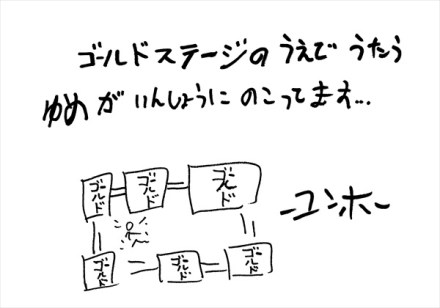 ゴールドステージのうえで うたう
ゆめが いんしょうに のこってます…
ゴールド
ゴールド
ゴールド
ーユンホー
ゴールド
ゴールド
ゴールド